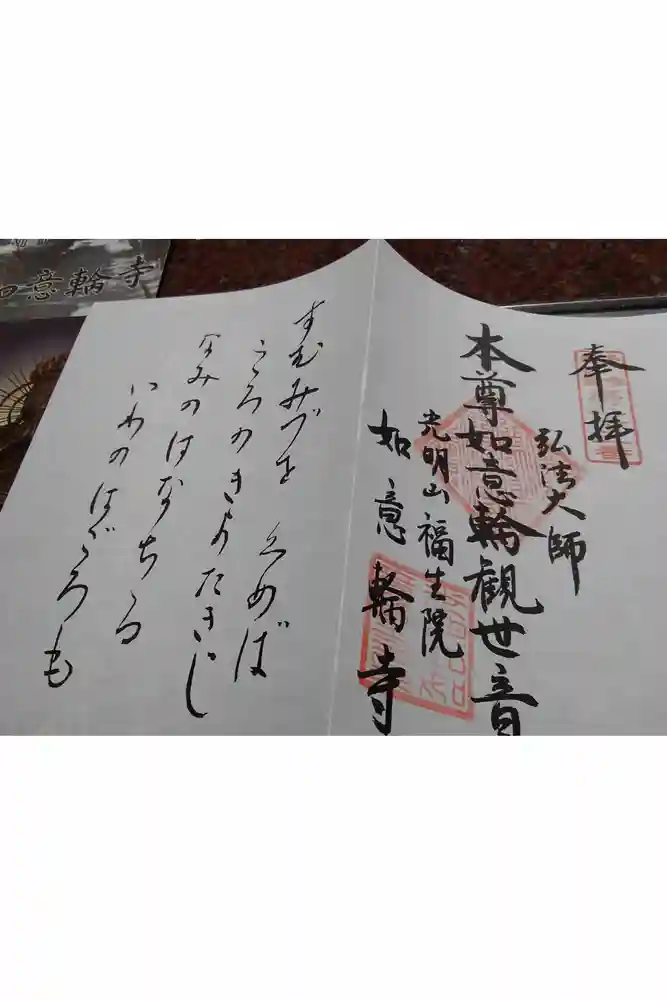 奉拝
弘法大師
本尊如意輪観世音
光明山福生院
如意輪寺
すむみづを くめば
こころのきよたきに
なみのはなちる
いわのはごろも
如意輪寺